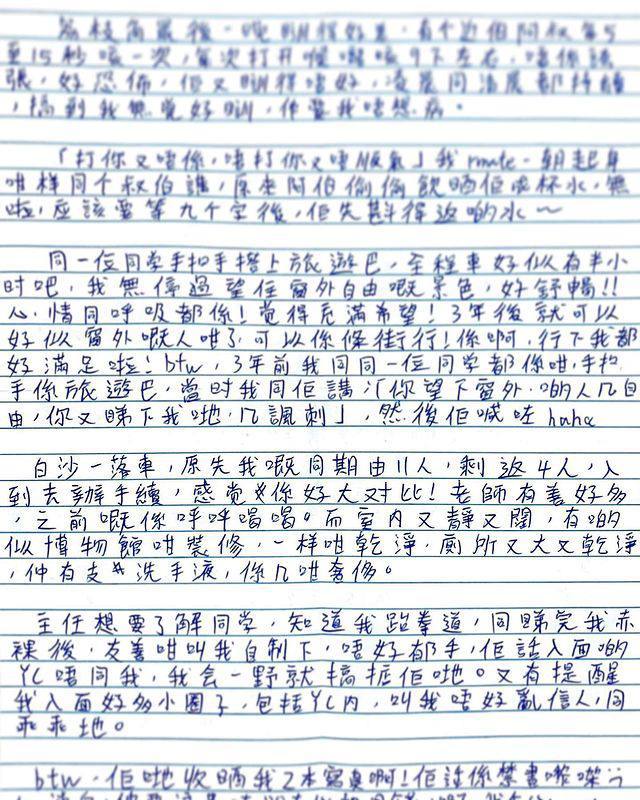 荔枝角最後一晚瞓得好差,有个近個阿叔每5
至15秒咳一次,每次打开喉嚨咳9下左右,唔係誇
張,好恐佈,佢又瞓得唔好,凌晨同清晨都持續
,搞到我無覺好瞓,仲驚我唔想病。
「打你又唔係,唔打你又唔順氣」我mute一朝起身
咁样同个叔伯講,原來阿伯偷偷飲晒佢嗰杯水,無
啦,应該要等九个字後,佢先斟得返啲水~
同一位同学手扣手搭上旅遊巴,全程車好似有半小
时吧,我無停過望住窗外自由嘅景色,好舒暢!!
心情同呼吸都係!覚得充滿希望!3年後就可以
好似窗外嘅人咁了,可以係條街行!係啊,行下我都
好滿足啦!btw,3年前我同同一位同学都係咁,手扣
手係旅遊巴,當时我同佢講:「你望下窗外啲人几自
由,你又睇下我哋,几諷刺」,然後佢喊咗haha
白沙一落車,原先我嘅同期由11人,剩返4人,入
到去辦手續,感覚係好大对比!老師有善好多
,之前嘅係呼呼唱唱。而室內又靜又闊,有啲
似博物館咁裝修,一样咁乾淨,廁所又大又乾淨
,仲有支洗手液,係几咁奢侈。
主任想要了解同学,知道我跆拳道,同睇完我赤
裸後,友善咁叫我自制下,唔好郁手,佢話入面啲
YC唔同我,我会一野就搞掂佢哋。又有提醒
我入面好多小圈子,包括YC内,叫我唔好亂信人,同
乖乖地。
btw,佢哋收晒我2本寫真啊!佢話係禁書嚟㗎